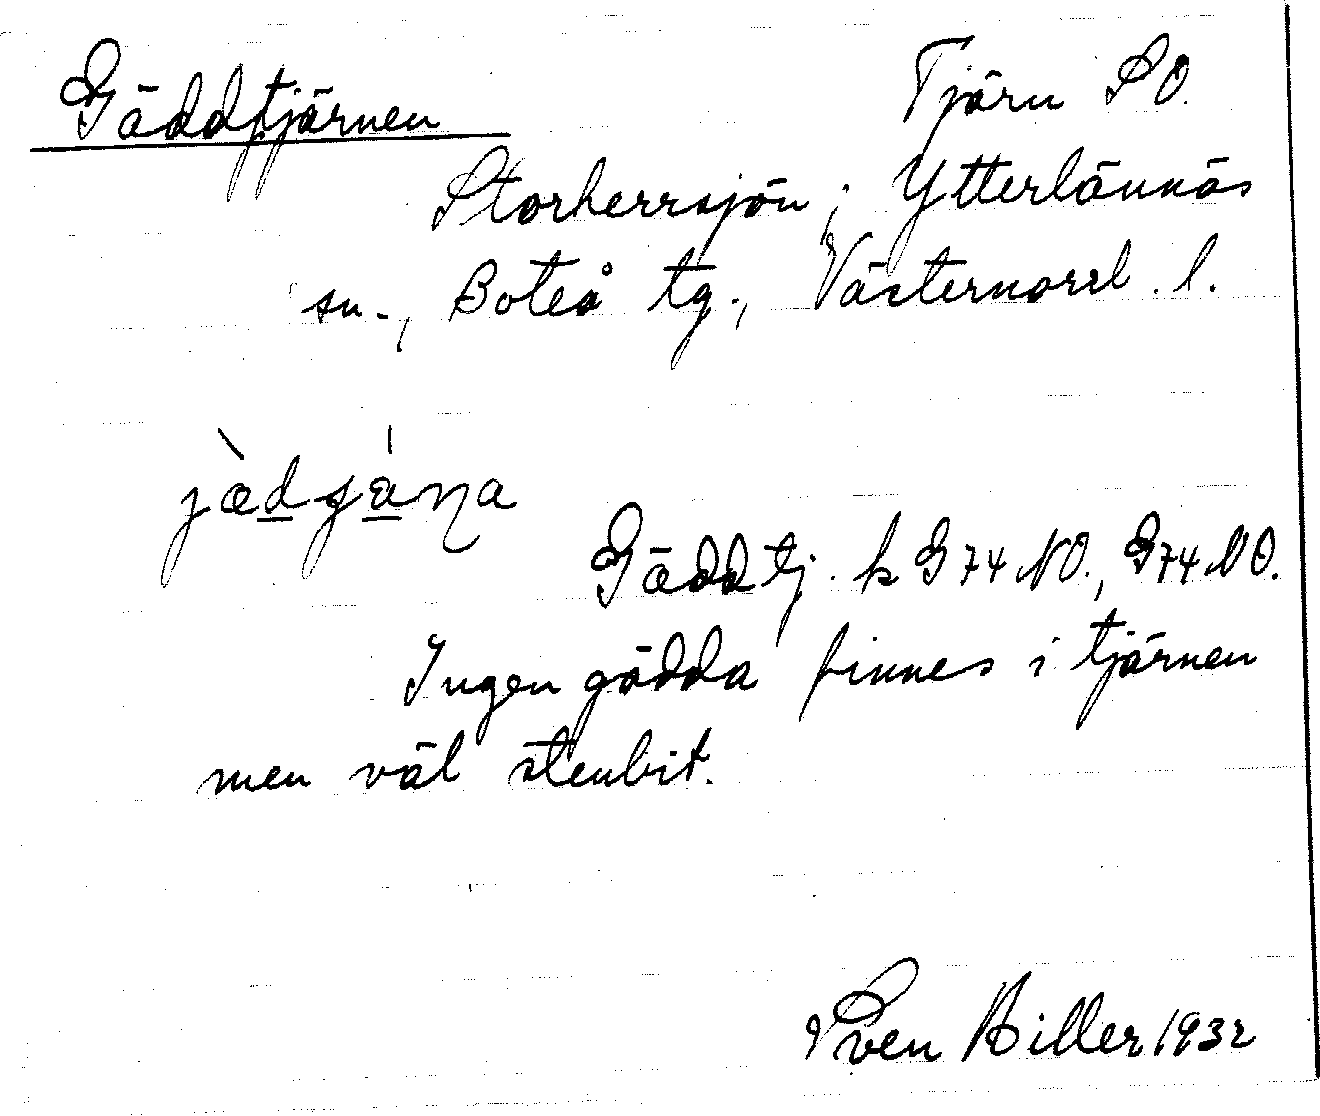 Gäddtjärnen Tjärn SO.
Storherrsjön; Ytterlännäs
sn., Boteå tg., Västernorrl. l.
Gäddtj. k G74 NO., G74 NO.
Ingen gädda finnes i tjärnen
men väl stenbit.
Sven Hiller 1932